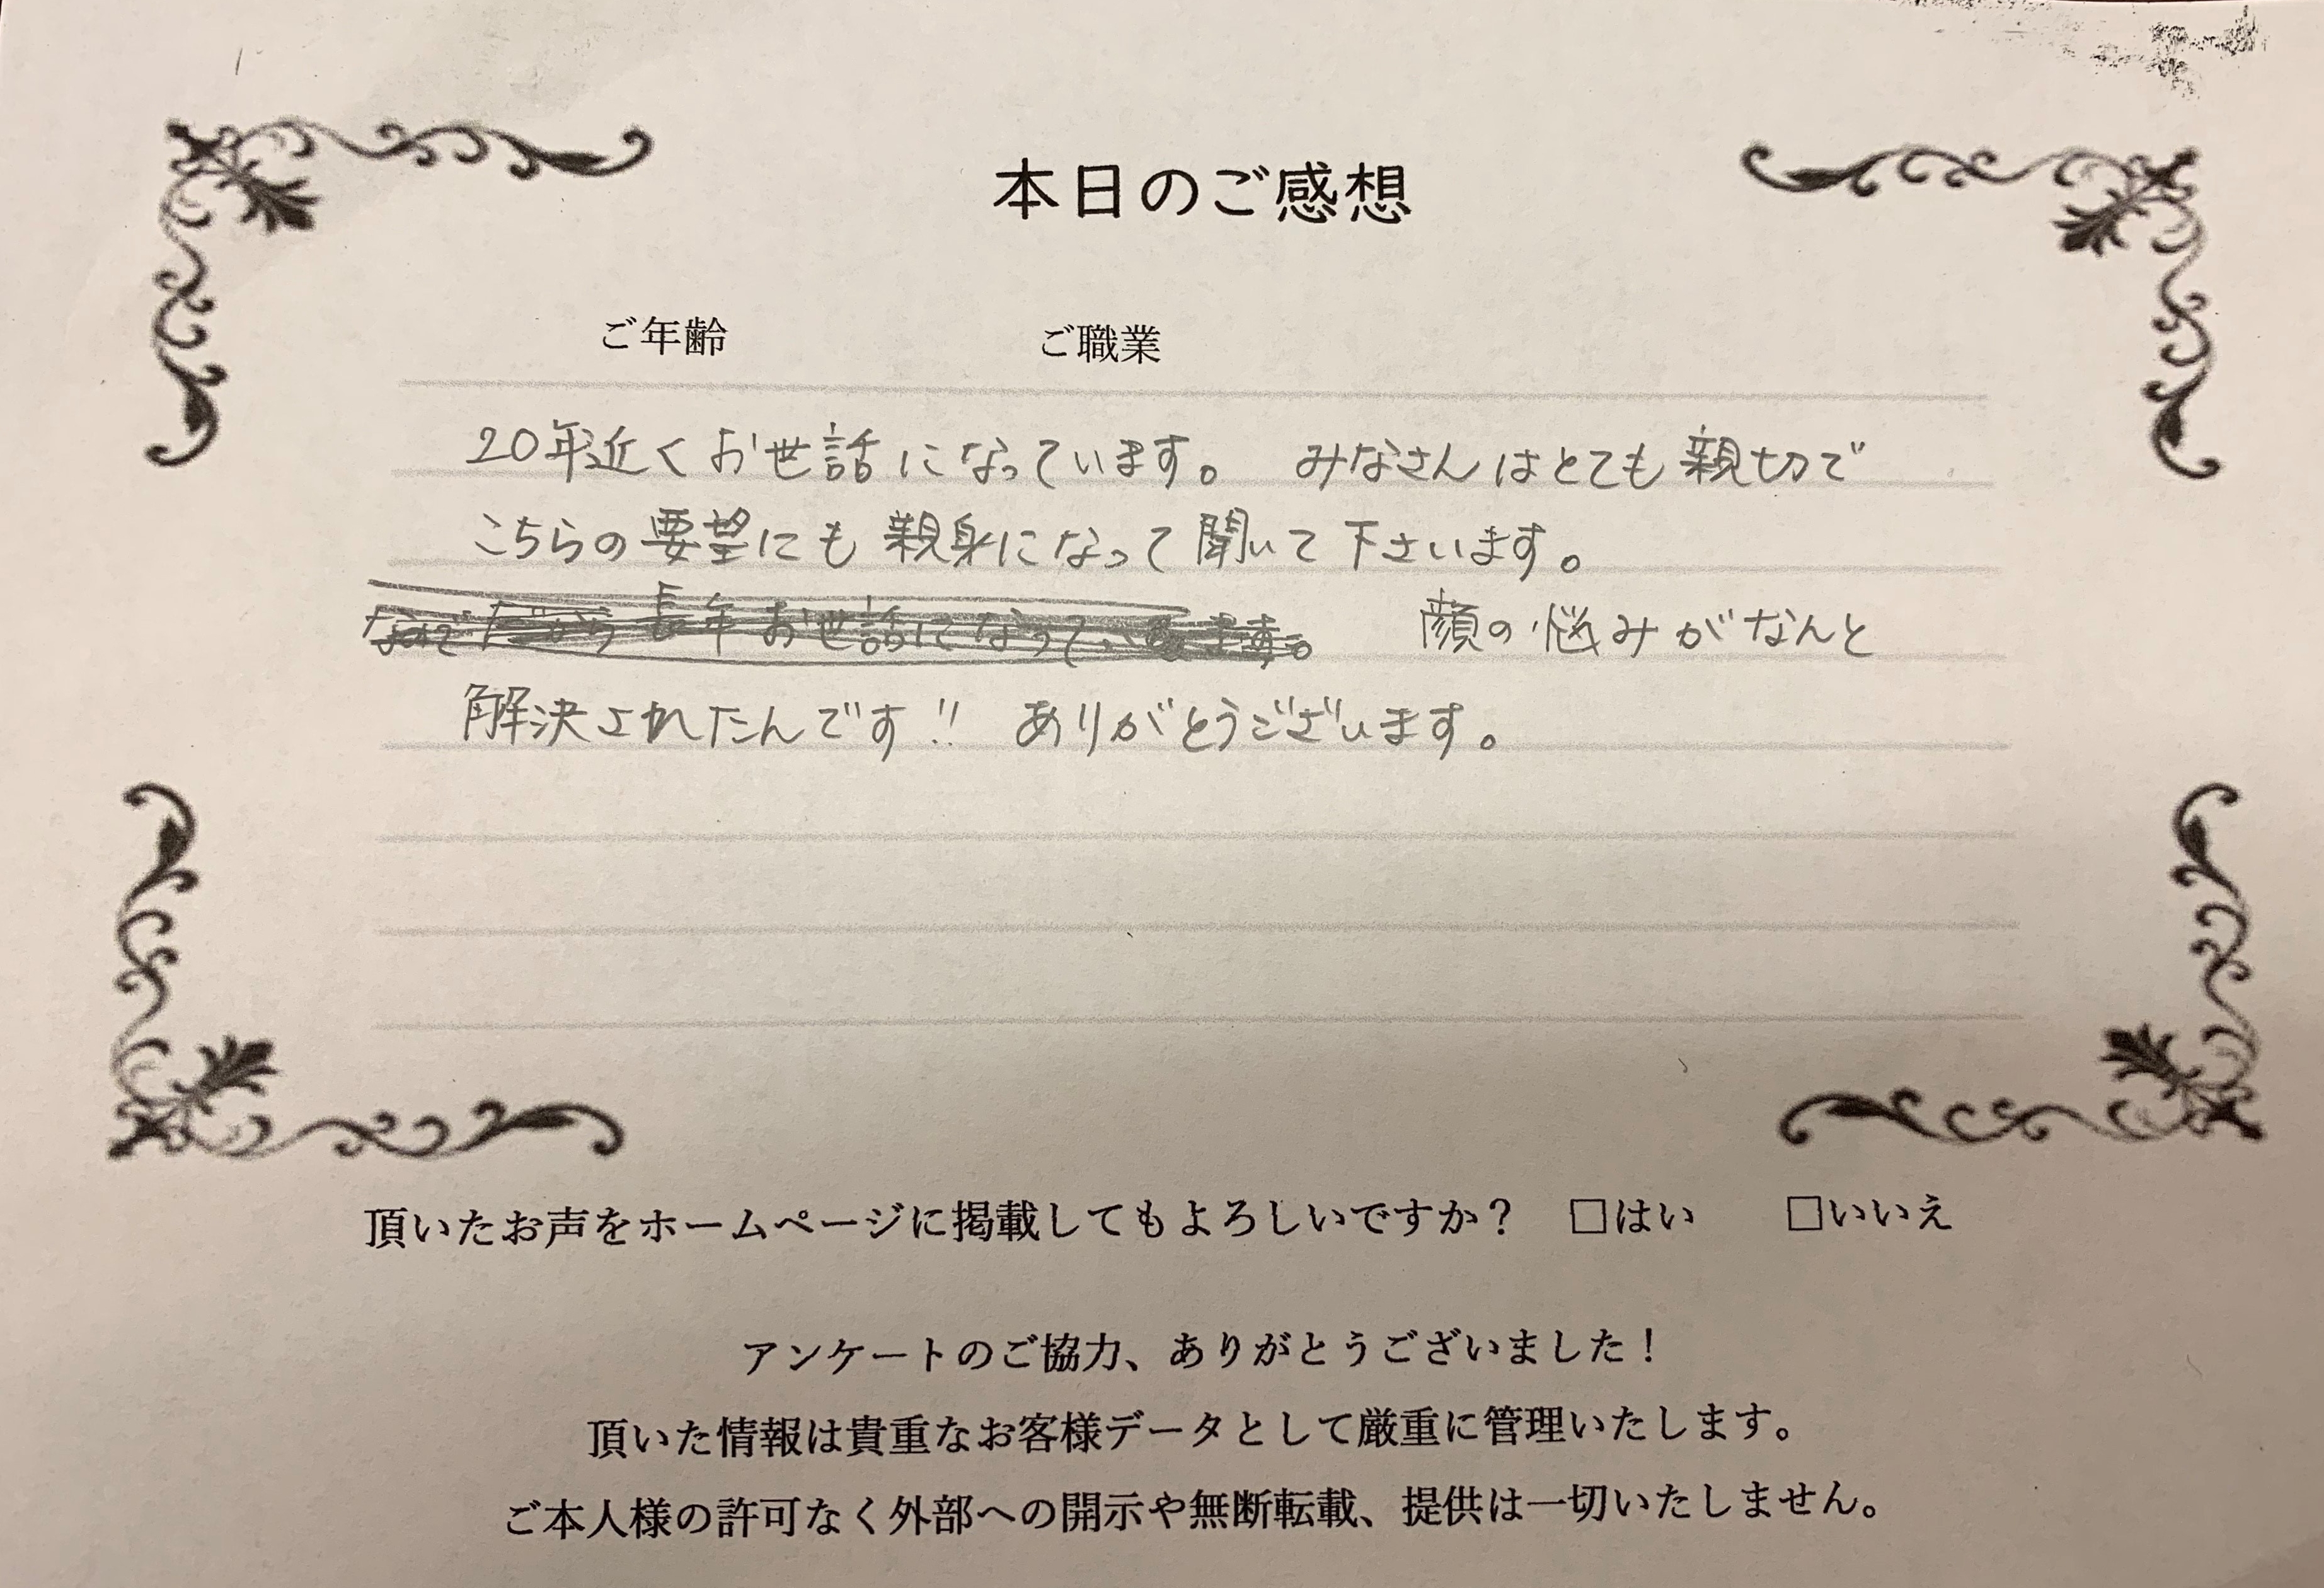 本日のご感想
ご年齢 ご職業
20年近くお世話になっています。 みなさんはとても親切で
こちらの要望にも親身になって聞いて下さいます。
長年お世話になって 顔の悩みがなんと
解決されたんです!! ありがとうございます。
頂いたお声をホームページに掲載してもよろしいですか？ □はい □いいえ
アンケートのご協力、ありがとうございました！
頂いた情報は貴重なお客様データとして厳重に管理いたします。
ご本人様の許可なく外部への開示や無断転載、提供は一切いたしません。